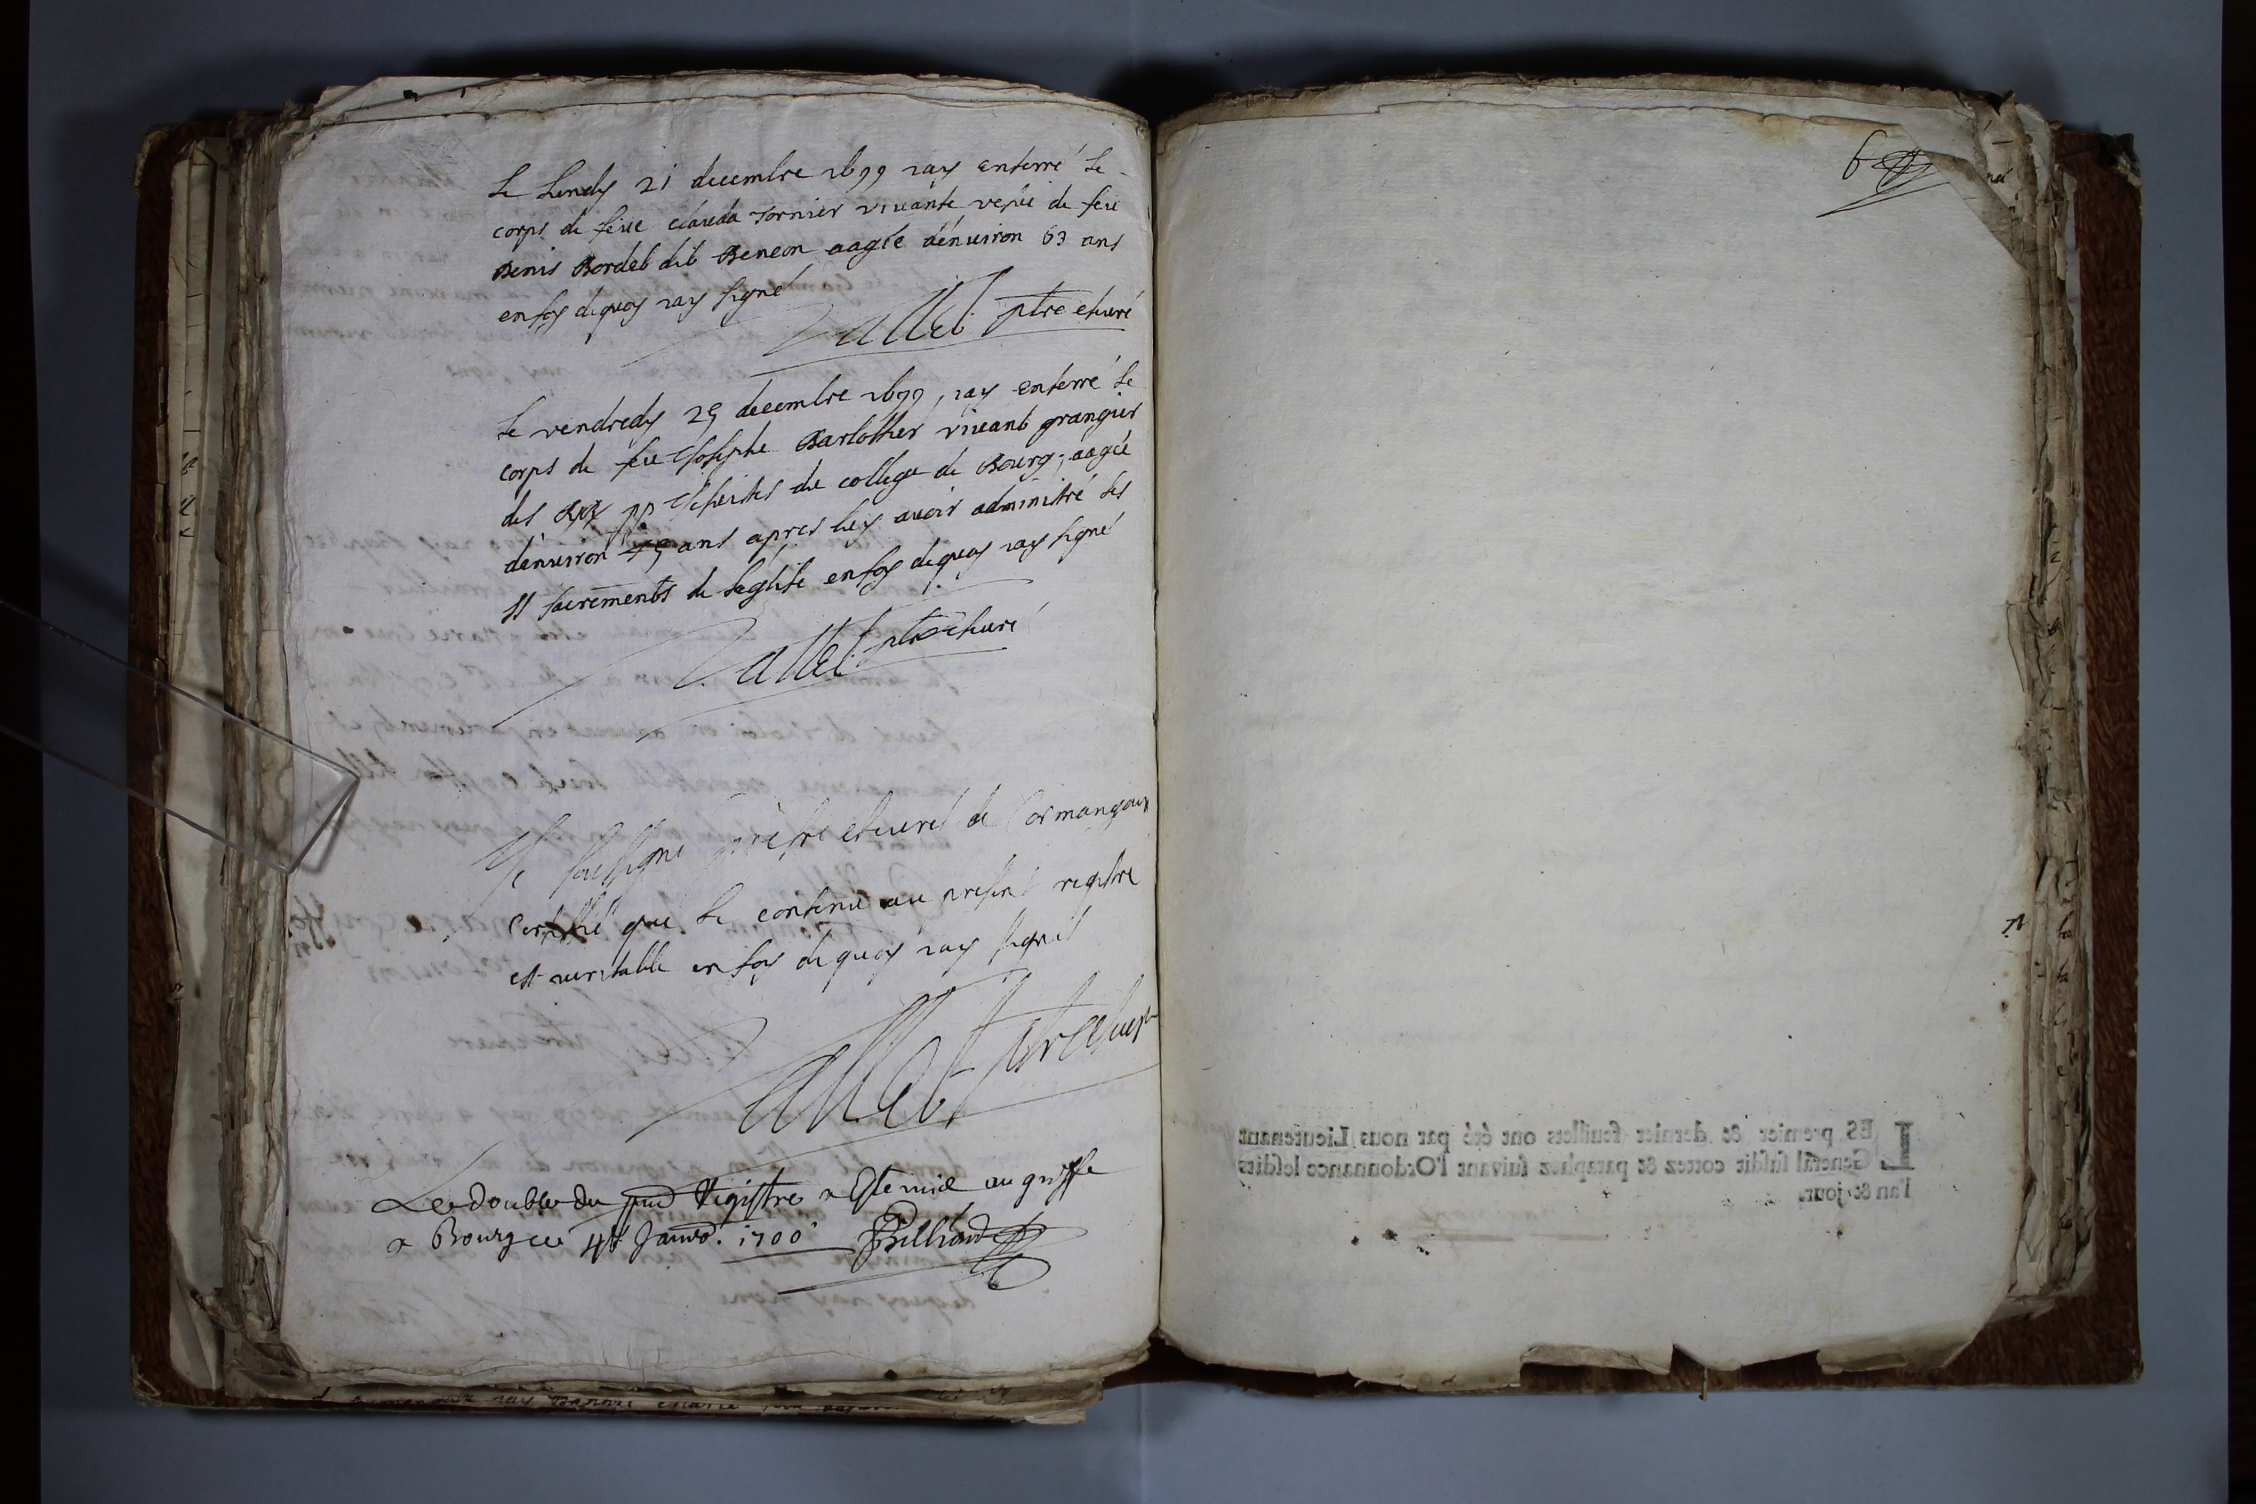 Le Lundy 21 decembre 1699 iay enterré le
corps de feue clauda Tornier vivante vefve de feu
Denis Bordet dit Beneon aagée d'environ 63 ans
en foy dequoy iay signé
Vallet ptre et curé
Le vendredy 25 decembre 1699 iay enterré le
corps de feu Joseph Barlothier vivant grangier
des RR PP Jesuites du college de Bourg, aagé
d'environ 45 ans apres luy avoir administré les
SS sacrements de leglise en foy dequoy iay signé
Vallet ptre et curé
Je soussigné prestre et curé de Cormangoux
certifie que le contenu au present registre
est veritable en foy de quoy iay signé
Vallet ptre et curé
Le double du pnt Registre a Esté mis au greffe
a Bourg ce 4e Janvr. 1700 Billiard
6
LES premier & dernier feuillets ont été par nous Lieutenant
General susdit cottez & paraphez suivant l'Ordonnance lesdits
l'an & jour.